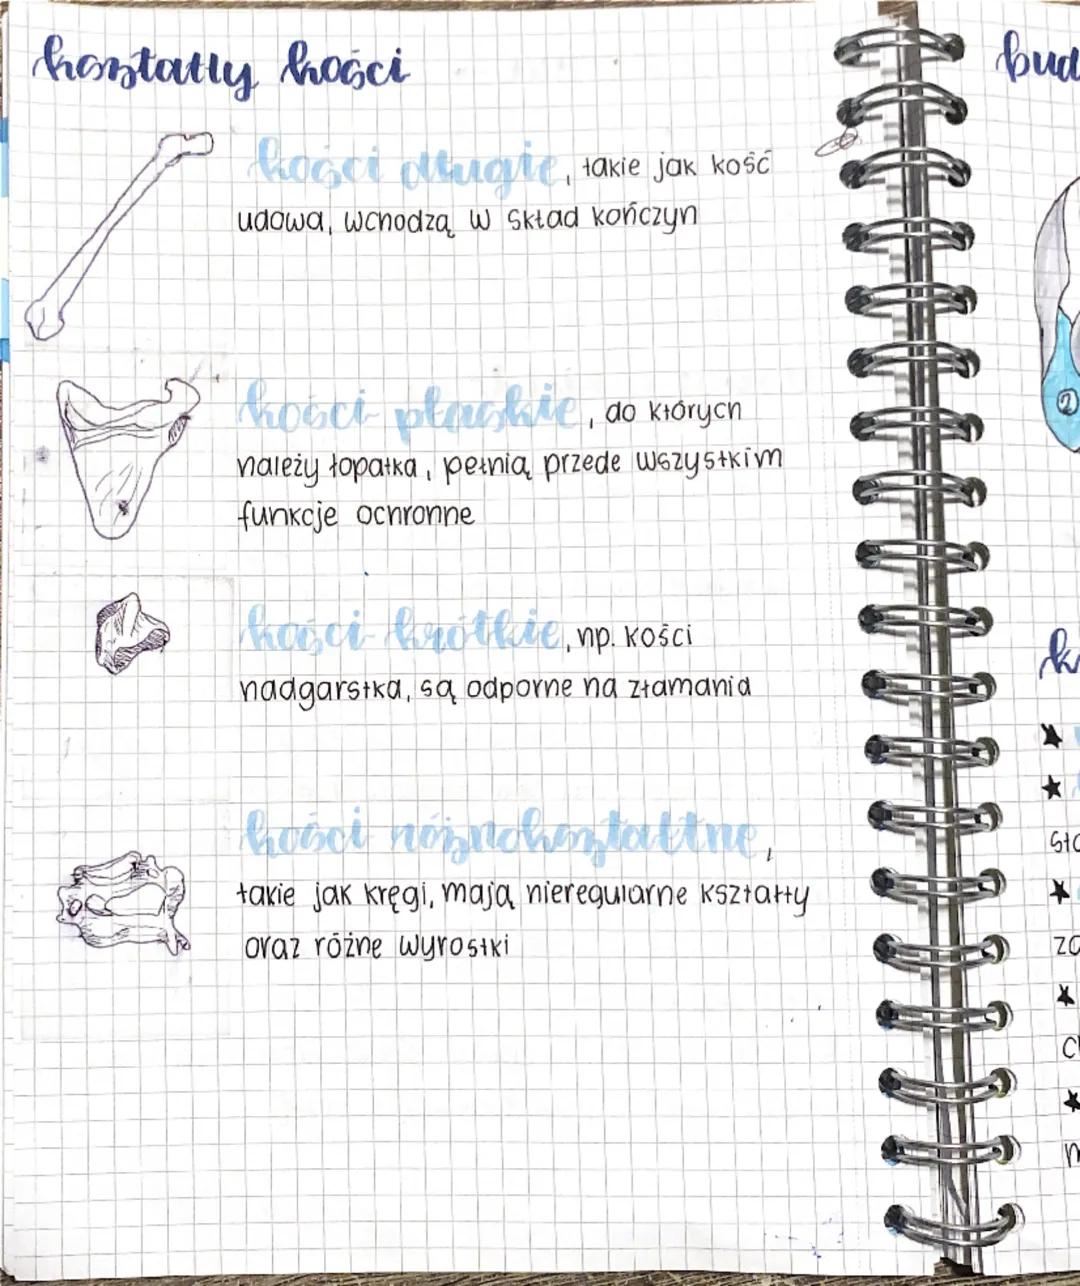 kształty kości
kości długie, takie jak kość
udowa, wchodzą w skład kończyn
kości płaskie, do których
należy łopatka, pełnią przede wszystkim
funkcje ochronne
kości krótkie, np. kości
nadgarstka, są odporne na złamania
kości różnokształtne,
takie jak kręgi, mają nieregularne kształty
oraz różne wyrostki
bud
2
k